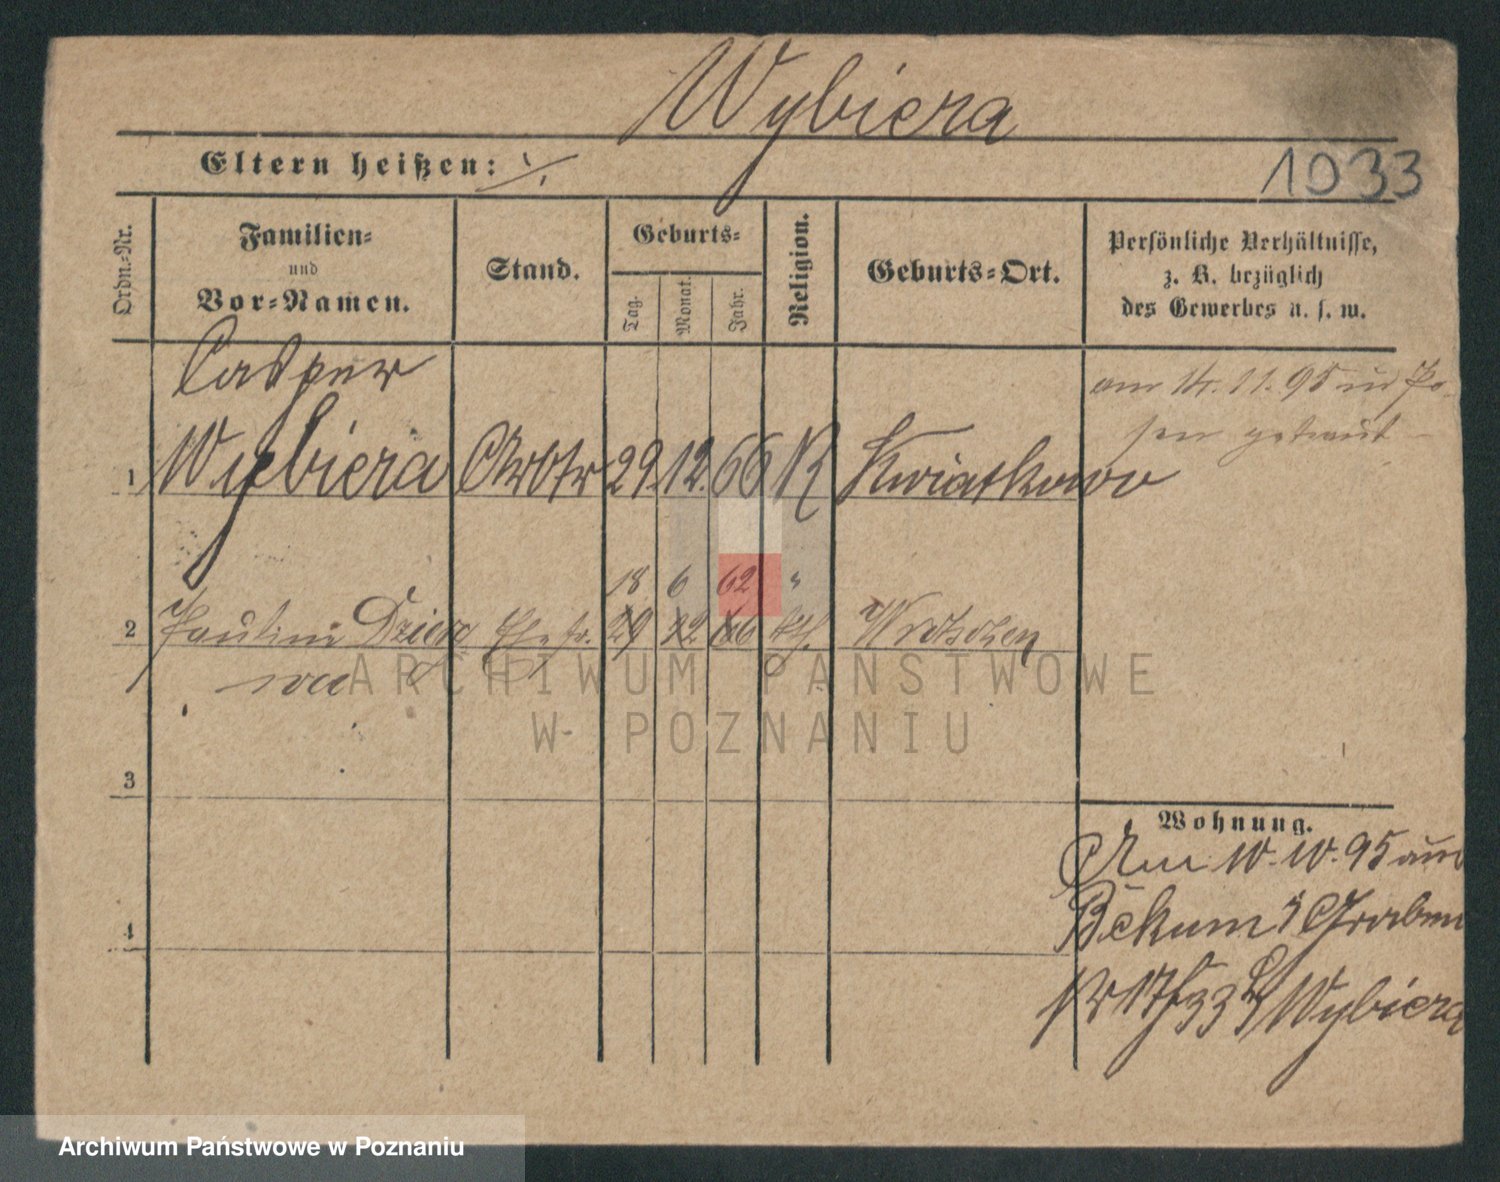 Wybiera
Eltern heißen: ./.
1933
Ordn.-Nr.
Familien-
und
Vor-Namen.
Stand.
Geburts-
Tag.
Monat.
Jahr.
Religion.
Geburts-Ort.
Persönliche Verhältnisse,
z. B. bezüglich
des Gewerbes u. s. w.
Casper
am 11.95 in Po-
sen getraut
1 Wybiera Arbtr 29. 12. 66 K Kwiatkowo
18 6 62 "
2 Pauline Dzier Ehefr. 29 12 66 kth. Wretschen
wa
3
4
Wohnung.
Am 10.10.95 aus
Bekum Graben
Nr 17/33 Wybiera
ARCHIWUM PAŃSTWOWE
W POZNANIU
Archiwum Państwowe w Poznaniu